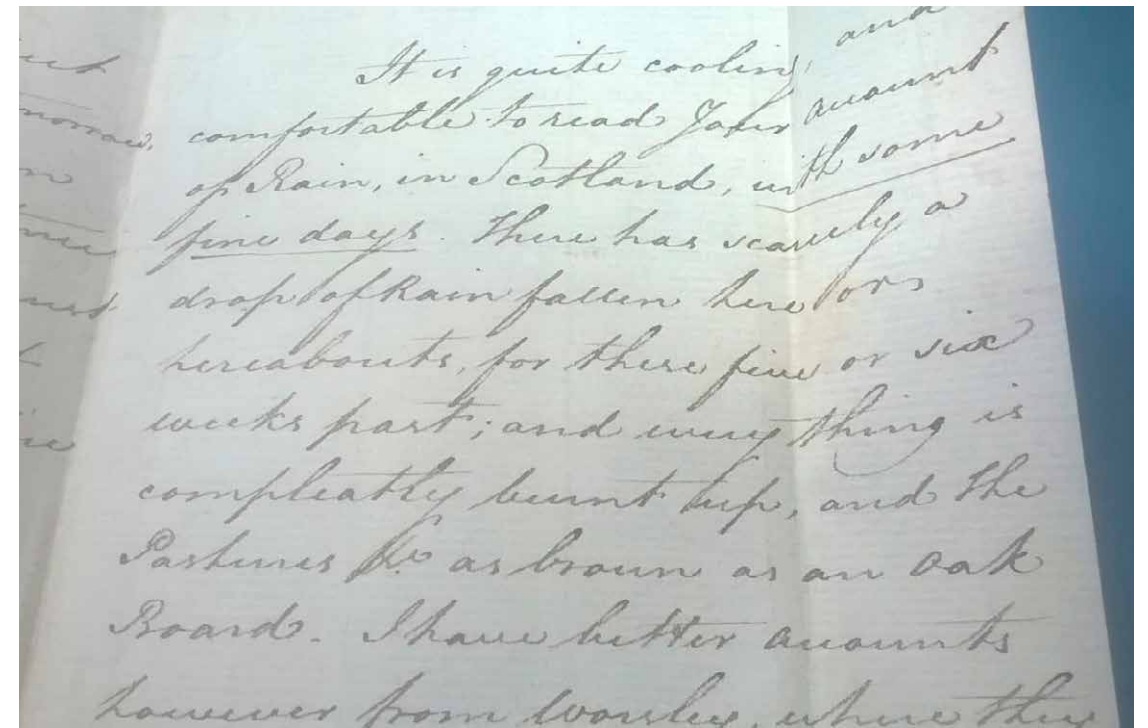 It is quite cooling, and
comfortable to read Your account
of Rain, in Scotland, with some
fine days. There has scarcely a
drop of Rain fallen here or
hereabouts, for these five or six
weeks past; and every thing is
compleatly burnt up, and the
Pastures &c. as brown as an Oak
Board. I have better accounts
however from Worsley, where the